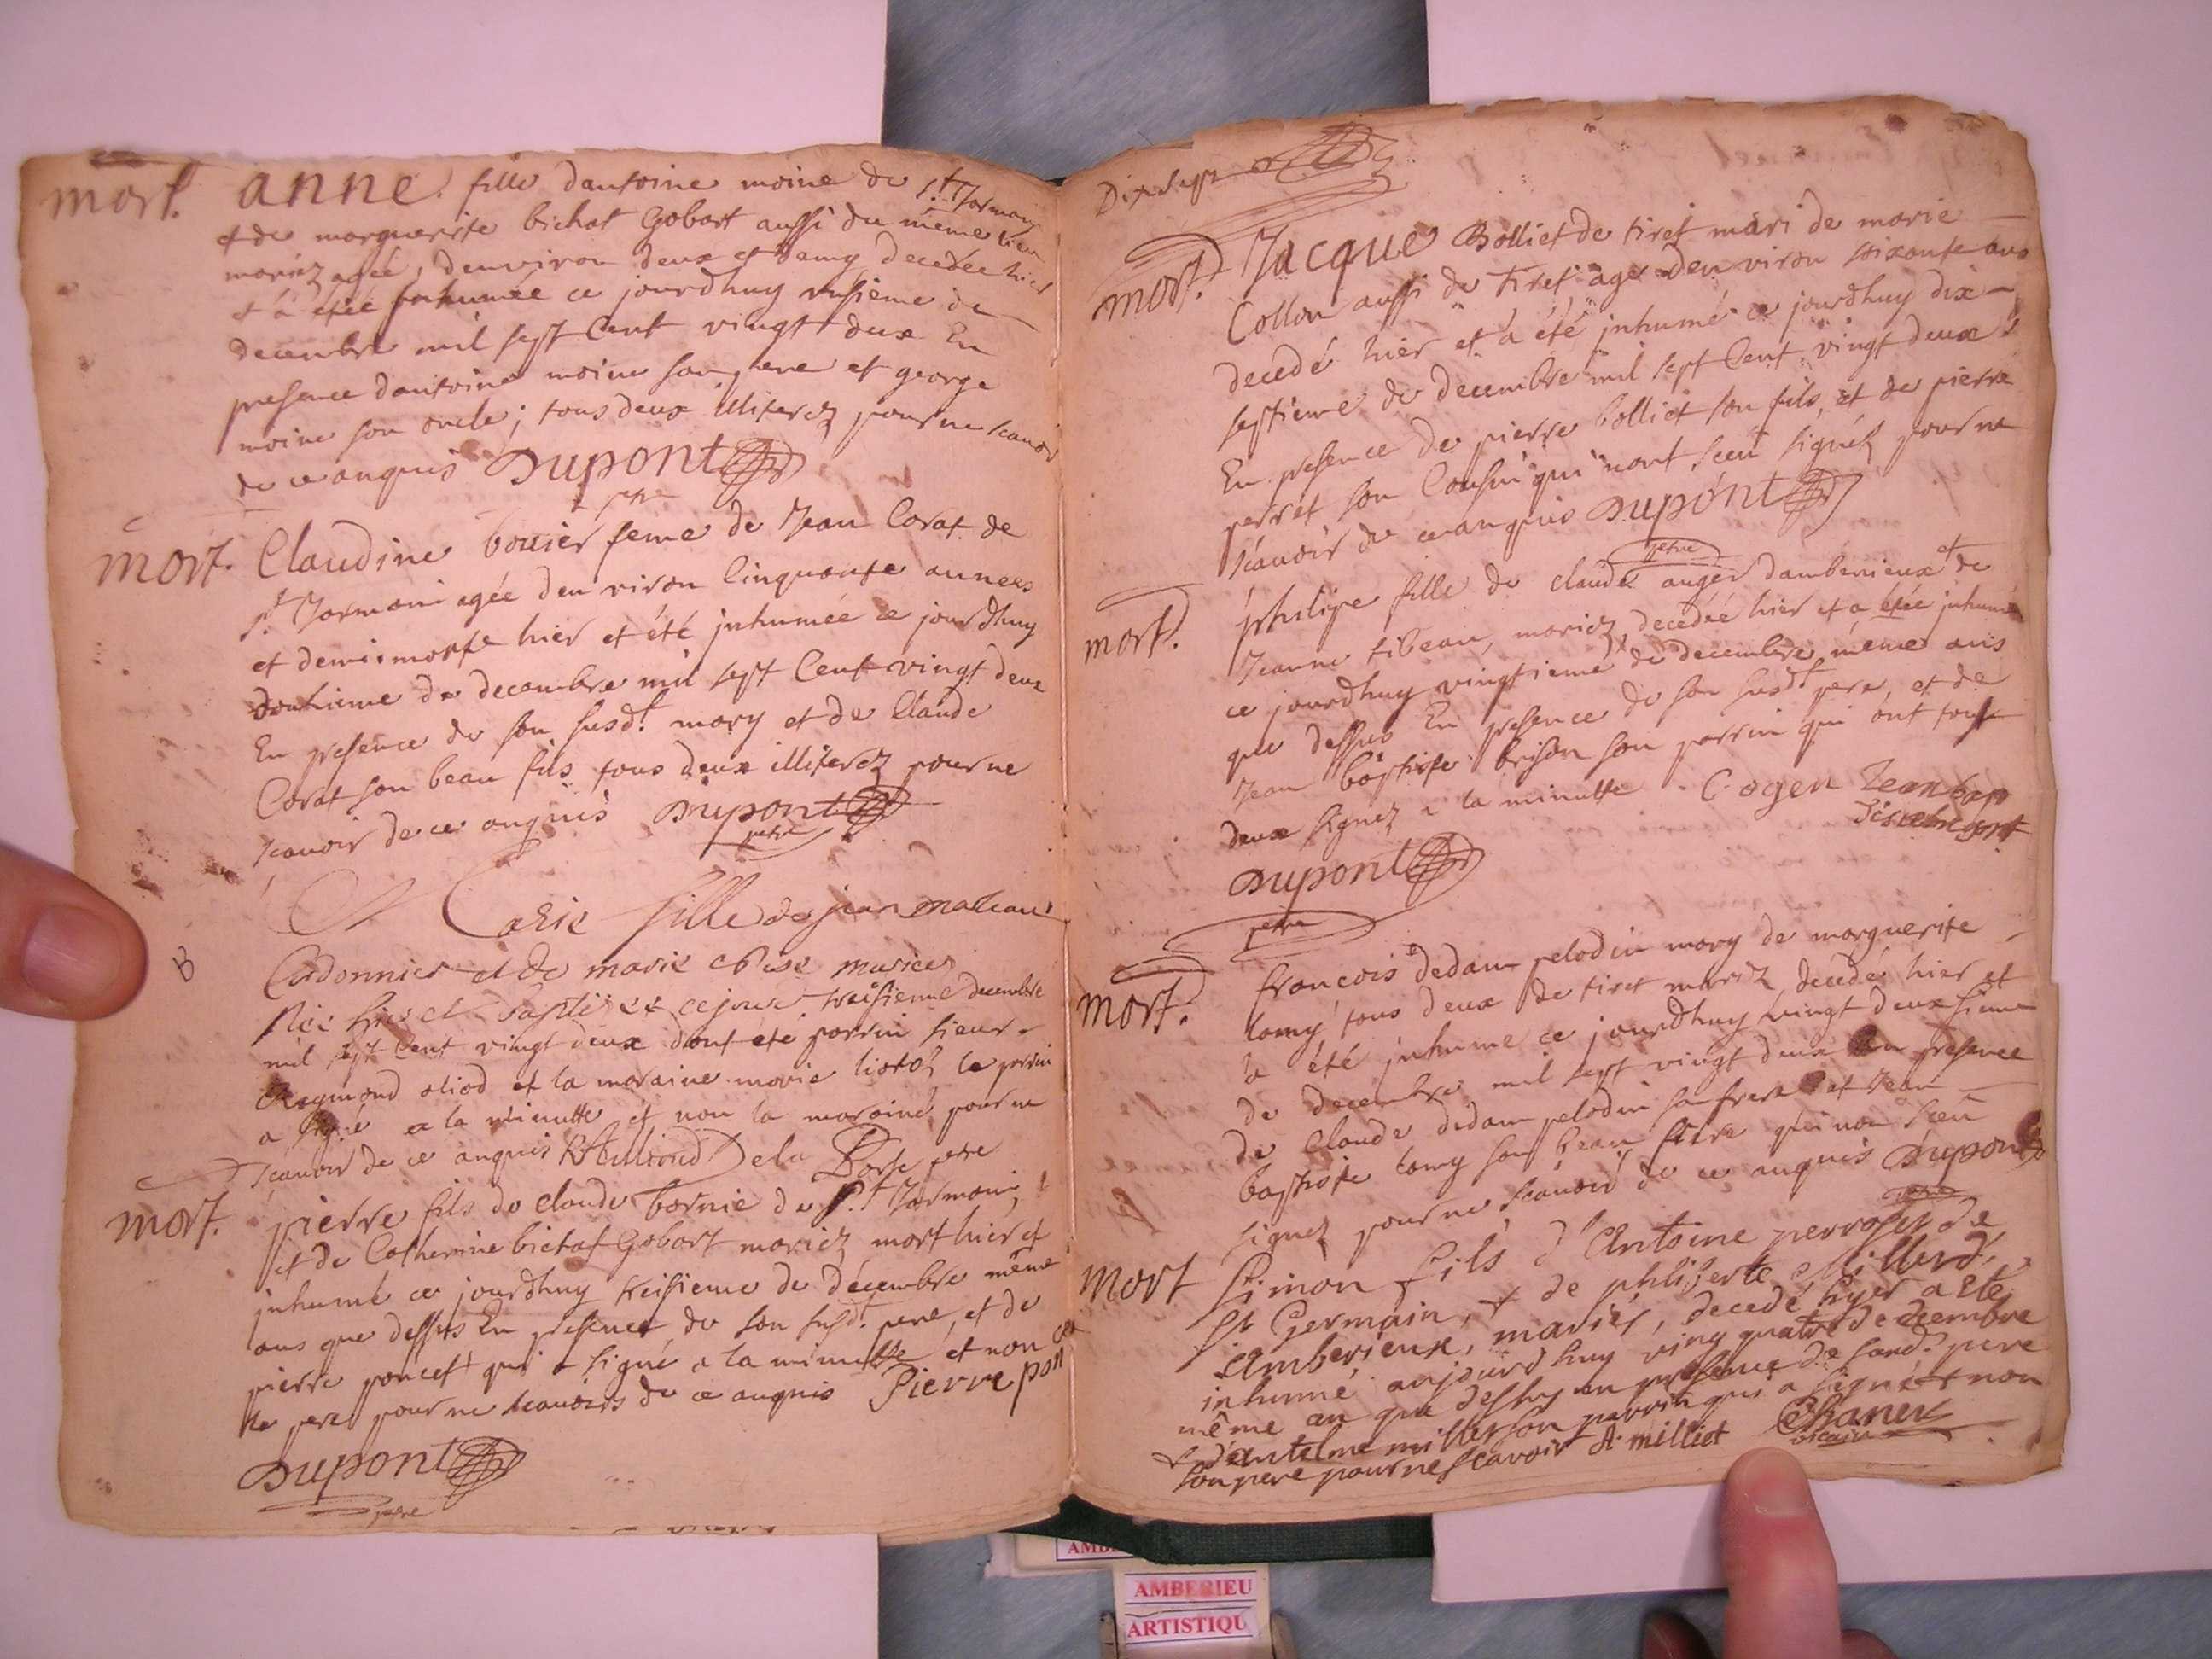 mort. anne fille dantoine moine de st Jarmain
et de marguerite bichat Gobart aussi du même lieu
mariez agée, denviron deux et demy decedée hier
et a étée inhumée ce jourdhuy unsieme de
decembre mil sept Cent vingt deux En
presence dantoine moine son pere et george
moine son oncle; tous deux illiterez pour ne scavoir
de ce anquis Dupont
ptre
mort. Claudine bouier feme de Jean Corat de
st Jarmain agée denviron Cinquante annees
et demi morte hier et été inhumée ce jourdhuy
douzieme de decembre mil sept Cent vingt deux
En presence de son susdt. mary et de Claude
Corat son beau fils tous deux illiterez pour ne
scavoir de ce anquis Dupont
petre
Marie fille de jean
B
Cordonnier et de marie maries
Née hier et baptisée ce jour treisieme decembre
mil sept Cent vingt deux dont été parrin sieur
Reymond aliod et la maraine marie le parrin
a signé a la minutte et non la maraine pour ne
scavoir de ce anquis De la Porte ptre
mort. pierre fils de claude bornie de st. Jarmain,
et de Catherine bichat Gobart mariez mort hier et
inhumé ce jourdhuy treisieme de décembre même
ans que dessus En presence de son susd. pere, et de
pierre poncet qui a signé a la minutte et non
le pere pour ne scavoirs de ce anquis Pierre ponce
Dupont
petre
Dixsept
mort. Jacque Bolliet de tiret mari de marie
Collon aussi de Tiret agé denviron soixante ans
decedé hier et a été inhumé ce jourdhuy dix
septieme de decembre mil sept Cent vingt deux
En presence de pierre bolliet son fils, et de pierre
perret son Cousin qui nont sceu signéz pour ne
scavoir de ce anquis Dupont
petre
mort. philipe fille de claude auger damberieux et de
Jeanne tibeau, mariez, decedée hier et a étée inhumé
ce jourdhuy vingtieme de decembre même ans
que dessus En presence de son susdt pere, et de
Jean baptiste brison son parrin qui ont tous
deux signez a la minutte C. ogen Jean bap
Dupont
petre
mort. francois dedam pelodin mary de marguerite
tamy tous deux de tiret mariz decedé hier et
a été inhumé ce jourdhuy vingt deuxsieme
de decembre mil sept vingt deux En presence
de Claude dedam pelodin son frere et Jean
baptiste tamy son beau frere qui non sceu
signez pour ne scavoir de ce anquis Dupont
petre
mort Simon fils d'Antoine perroset de
St Germain, et de philiberte Milliard,
d'Amberieux, mariés, decedé hyer a ete
inhumé aujourdhuy vingt quatre de decembre
même an que dessus en presence de sond. pere
& d'antelme millet son parrin qui a signé & non
son pere pour ne scavoir A. milliet Chanel
vicaire
AMBERIEU
ARTISTIQU